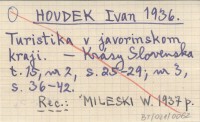 HOVDEK Ivan 1936.
Turistika v javorinskom
kraji. — Krásy Slovenska
t. 15, nr 2, s. 25-29; nr 3,
s. 36-42.
Rec.: MILESKI W. 1937 p.